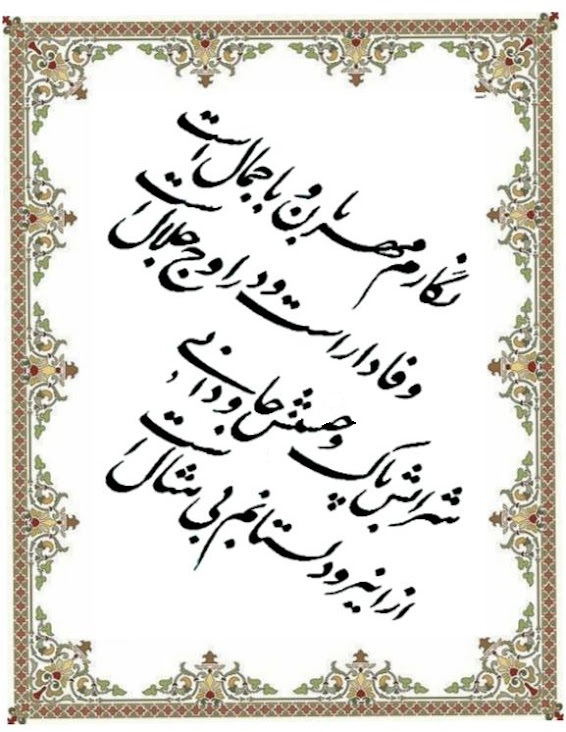 نگارم مهربان و با جمال است
وفادار است و در اوج جلال است
شرابش پاک و چشمش جاودانی
ازانیرو دلستانم بی مثال است